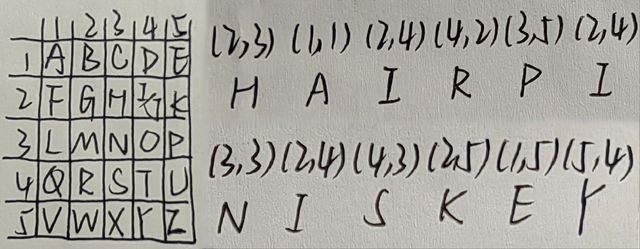 1 2 3 4 5
1 A B C D E
2 F G H I/J K
3 L M N O P
4 Q R S T U
5 V W X Y Z
(2,3) (1,1) (2,4) (4,2) (3,5) (2,4)
H A I R P I
(3,3) (2,4) (4,3) (2,5) (1,5) (5,4)
N I S K E Y